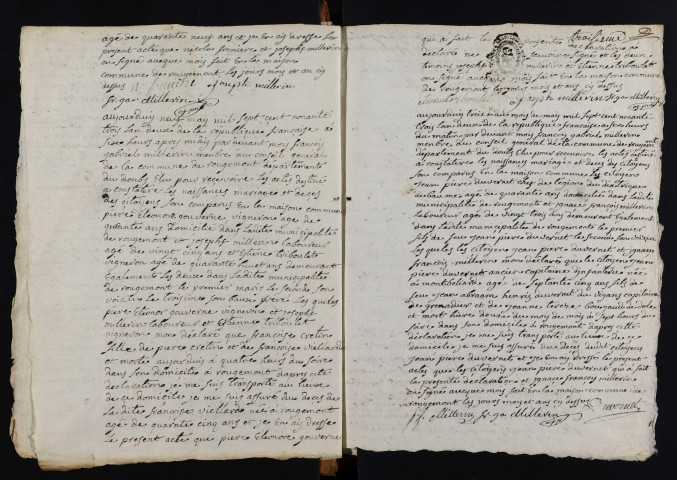 age de quarante neuf ans et je en ait dressé le
present acte que nicolas freniere et joseph millerin
on signé aveque moit fait en la maison
commune de rougemont les jours moy et an cy
dessus
joseph millerin
fr gar Millerin
aujourduit neuf may mil sept cent nonante
trois lan deuse de la republique françoise a
sixe heurs apres midit par devant mois françois
gabriel millerin membre du conseil general
de la commune de rougemont departement
du doubs elue pour recevoire les actes destiné
a constatere les naissances mariages et deces
des citoyens son comparus en la maison commune
pierre Eleonore gouverne vigneron age de
ans domicilié dans ladite municipalité
de rougemont et joseph millerin laboureur
age de vingt cinq ans et Etienne triboulet
vigneron age de quarante ans et demeurant
Egalement les deuse dans ladite municipalité
de rougemont le premier marit le segonde son
voisin le troisieme son bausi frere les quels
pierre Eleonor gouverne vigneron et joseph
millerin laboureur et Ettienne triboulet
vigneron mon declaré que françoise cretin
fille de pierre cretin et de françoise viellard
et morte aujourduit a quatre heurs du soire
dans son domicile a rougemont dapres cette
declaration je me suit transporté au lieux
de ce domicile je me suit assuré du deces de
la dite françoise viellard née a rougemont
age de quarante cinq ans et je en ait dressé
le present acte que piere Eleonore gouverne
qui a fait la presente
troisieme
declaration a
declaré ne
temoin joseph millerin et Etienne triboulet
on signé aveque mois fait en la maison commune
de rougemont les jours mois et an cy dessus
joseph millerin fr gar Millerin
aujourduit trois du mois de may mil sept cent nonante
trois lan deuse de la republique françoise a sixe heurs
du matin par devant moy françois gabriel millerin
menbre du conseil general de la commune de rougemont
departement du doubs elue pour recevoire les actes destiné
a constatere les naisances mariage et deces des citoyens
son comparus en la maison commune les citoyens
jean pierre duvernet chef de legion du districque
de baume age de quarante ans domicilié dans ladite
municipalité de rougemont et ignace françois millerin
laboureur age de vingt trois ans demeurant egalement
dans ladite municipalite de rougemont le premier
fils de feut jean pierre duvernet le segonde son voisin
les quels les citoyens jean pierre duvernet et ignace
françois millerin mon declaré que le citoyen jean
piere duvernet ancien capitaine dinfanterie née
a montbeliare age de septante cinq ans fils de
feut jean abraam henris duvernet du vivans capitaine
de grenadier et de jeanne tereze de dole
et mort hiere deuse du mois de may a sept heurs du
soire dans son domicile a rougemont dapres cette
declaration je me suis sur le champ porté au lieux de ce
domicile je me suis assuré du deces dudit citoyens
jean pierre duvernet et je en ait dressé le present
acte que les citoyens jean pierre duvernet qui a fait
la presente declaration et ignace françois millerin
on signée aveque mois fait en la maison commune de
rougemont les jours moy et an cy dessus
duvernet
i f Millerin fr gar Millerin